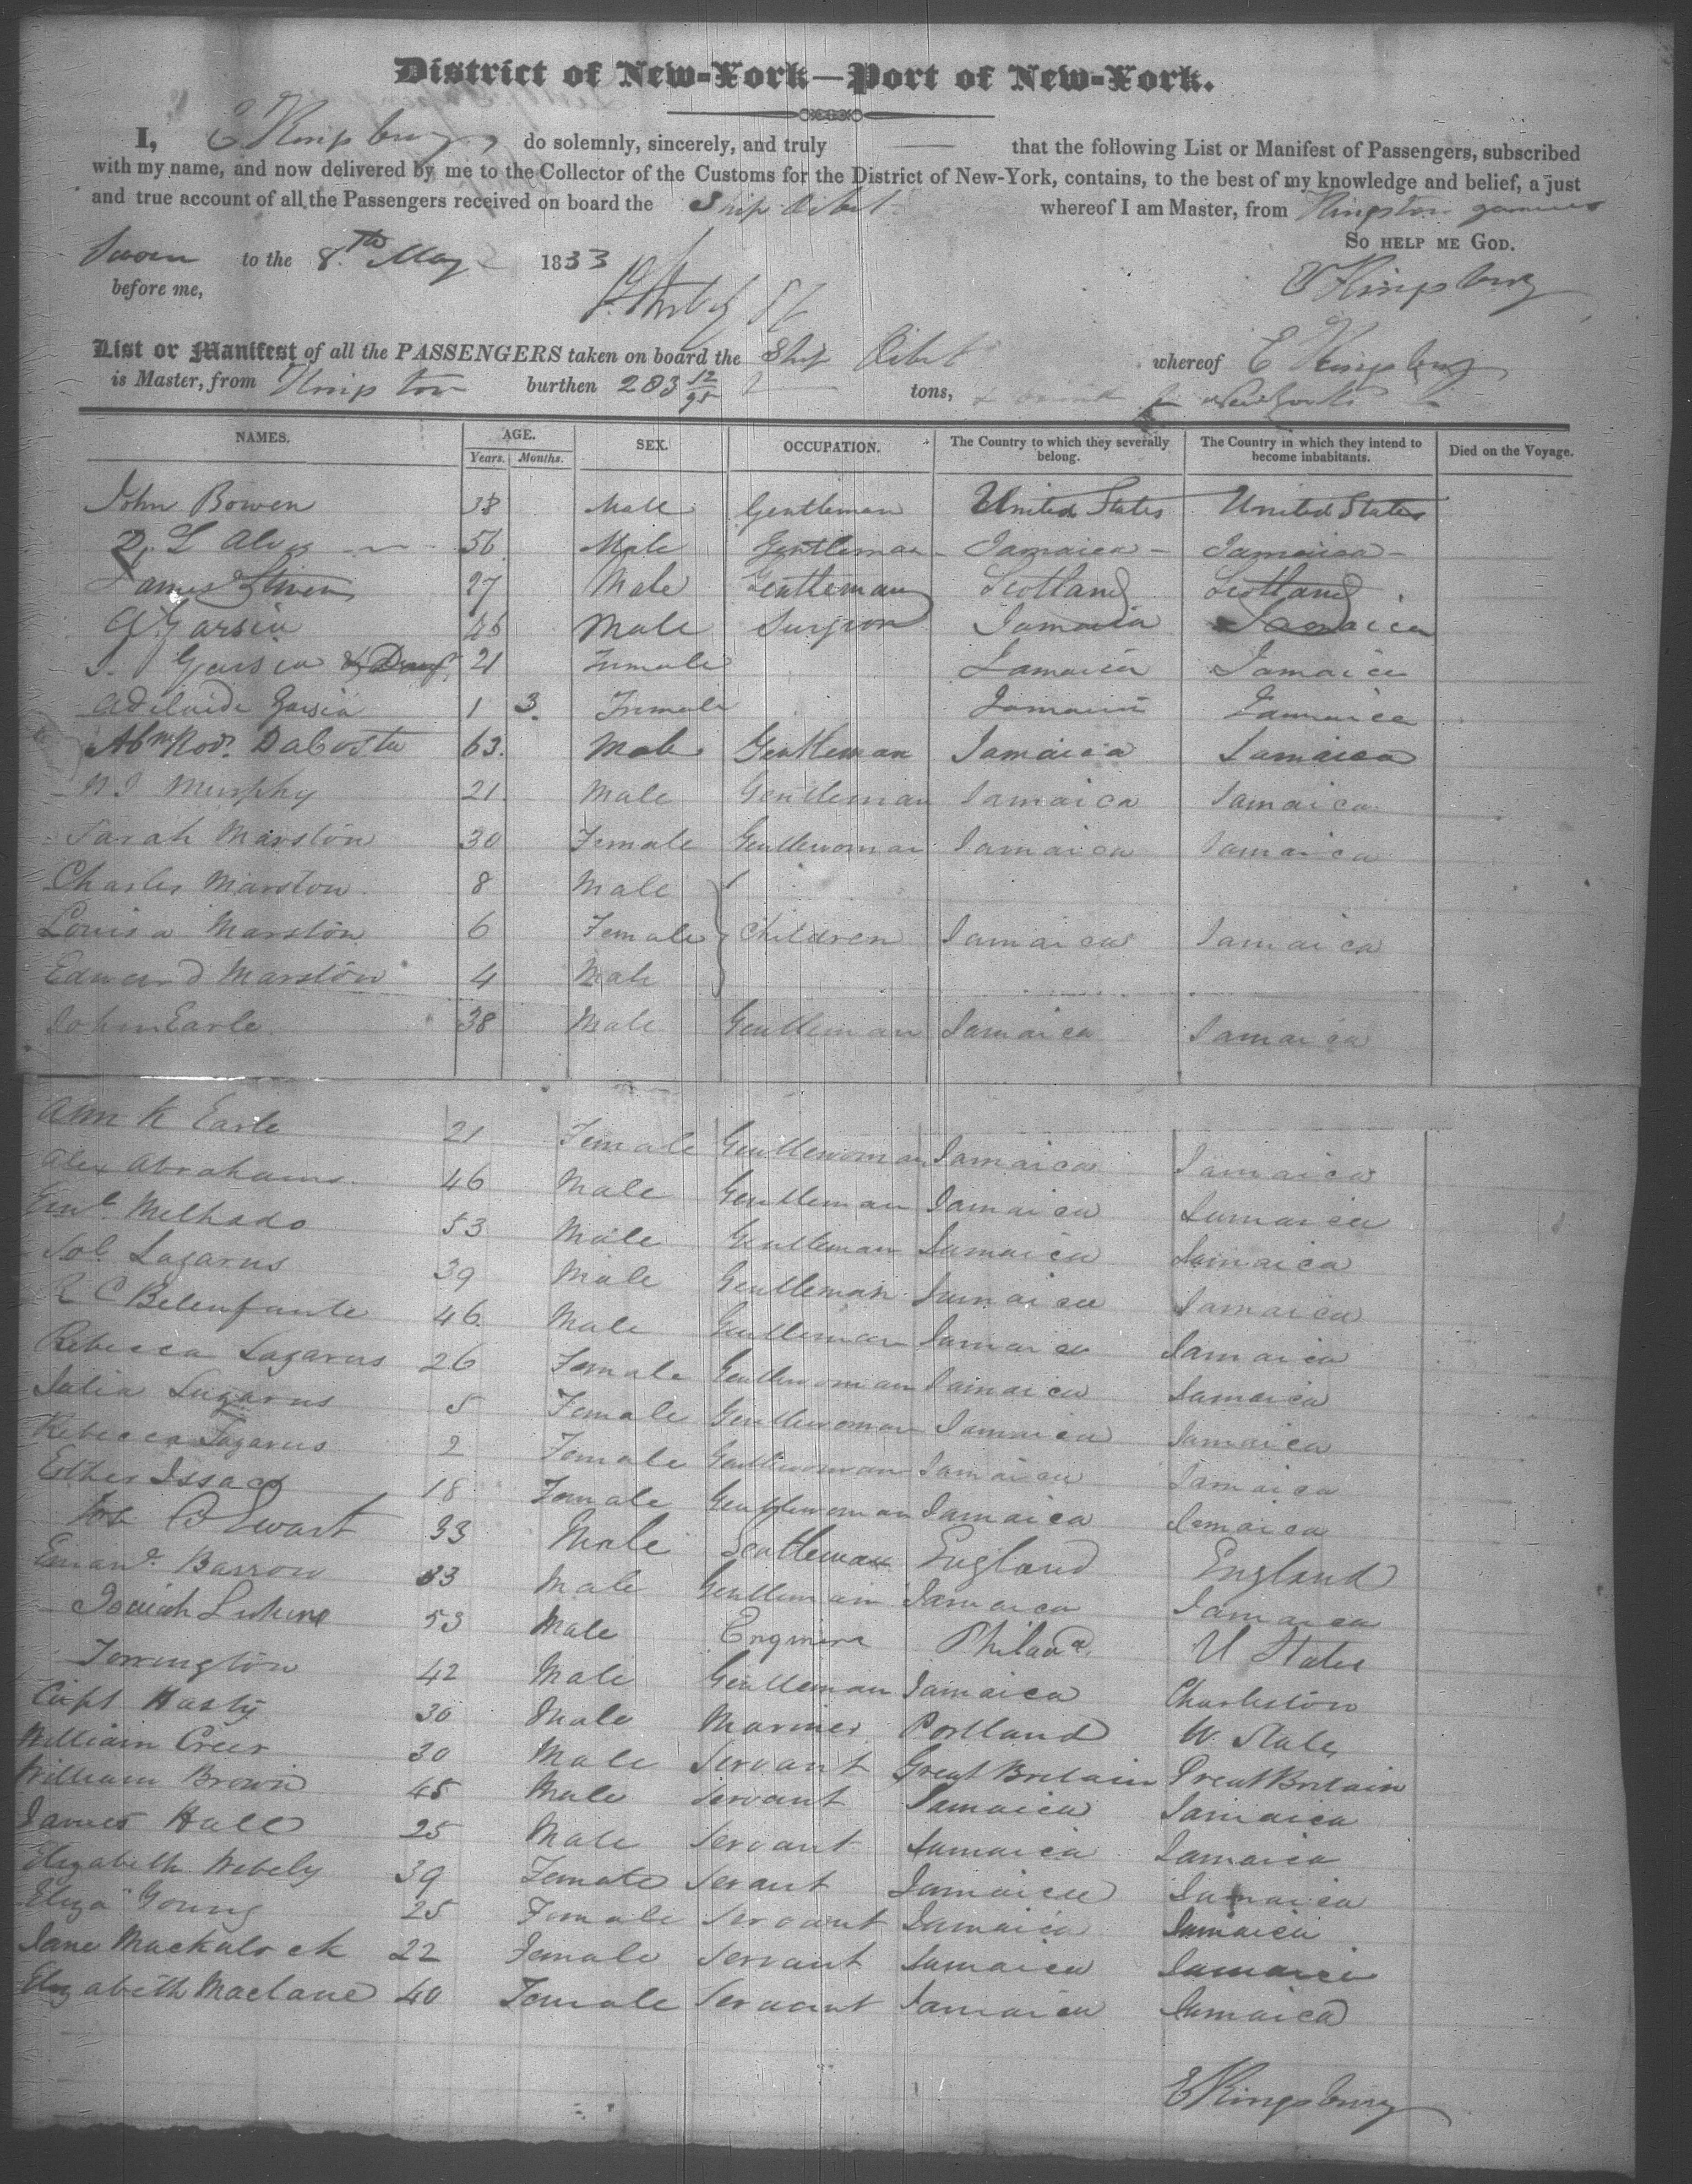 District of New-York—Port of New-York.
I, E Kingsbury do solemnly, sincerely, and truly — that the following List or Manifest of Passengers, subscribed
with my name, and now delivered by me to the Collector of the Customs for the District of New-York, contains, to the best of my knowledge and belief, a just
and true account of all the Passengers received on board the Ship Orbit whereof I am Master, from Kingston Jamaica
So help me God.
Sworn to the 8th May 1833
before me,
E Kingsbury
List or Manifest of all the PASSENGERS taken on board the Ship Orbit whereof E Kingsbury
is Master, from Kingston burthen 283 12/95 tons, & bound for New York
NAMES. AGE. SEX. OCCUPATION. The Country to which they severally belong. The Country in which they intend to become inhabitants. Died on the Voyage.
Years. Months.
John Bowen 38 Male Gentleman United States United States
D. L Alves 56 Male Gentleman Jamaica Jamaica
James Stiven 27 Male Gentleman Scotland Scotland
Garsia 46 Male Surgeon Jamaica Jamaica
Garsia 21 Female Jamaica Jamaica
Adelaide Garsia 1 3 Female Jamaica Jamaica
Abm Rodr. DaCosta 63 Male Gentleman Jamaica Jamaica
Murphy 21 Male Gentleman Jamaica Jamaica
Sarah Marston 30 Female Gentlewoman Jamaica Jamaica
Charles Marston 8 Male
Louisa Marston 6 Female Children Jamaica Jamaica
Edward Marston 4 Male
John Earle 38 Male Gentleman Jamaica Jamaica
Ann K Earle 21 Female Gentlewoman Jamaica Jamaica
Alex Abrahams 46 Male Gentleman Jamaica Jamaica
Eml. Melhado 53 Male Gentleman Jamaica Jamaica
Sol. Lazarus 39 Male Gentleman Jamaica Jamaica
R C Belenfante 46 Male Gentleman Jamaica Jamaica
Rebecca Lazarus 26 Female Gentlewoman Jamaica Jamaica
Julia Lazarus 5 Female Gentlewoman Jamaica Jamaica
Rebecca Lazarus 2 Female Gentlewoman Jamaica Jamaica
Esther Issacs 18 Female Gentlewoman Jamaica Jamaica
Ewart 33 Male Gentleman England England
Emanl. Barrow 33 Male Gentleman Jamaica Jamaica
Isaiah Lukens 53 Male Engineer Philada. U States
Torrington 42 Male Gentleman Jamaica Charleston
Capt Hasty 30 Male Mariner Portland U. States
William Creer 30 Male Servant Great Britain Great Britain
William Brown 45 Male Servant Jamaica Jamaica
James Hall 25 Male Servant Jamaica Jamaica
Elizabeth Webely 39 Female Servant Jamaica Jamaica
Eliza Young 25 Female Servant Jamaica Jamaica
Jane Mackalock 22 Female Servant Jamaica Jamaica
Elizabeth Maclane 40 Female Servant Jamaica Jamaica
E Kingsbury